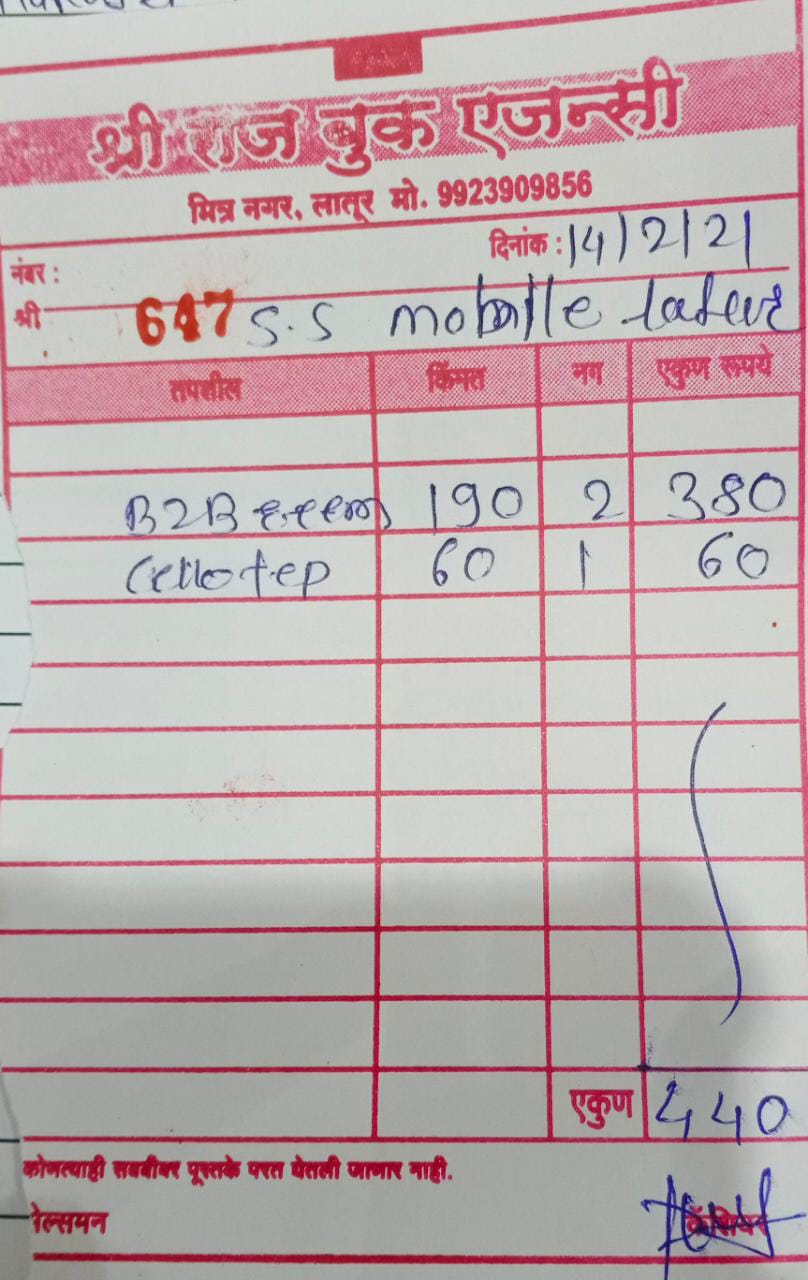 श्री राज बुक एजन्सी
मित्र नगर, लातूर मो. 9923909856
दिनांक : 14/2/21
नंबर :
श्री 647 S.S mobille
तपशील किंमत नग एकुण रूपये
B2B 190 2 380
Cellotep 60 1 60
एकुण 440
कोणत्याही सबबीवर पूस्तके परत घेतली जाणार नाही.
सेल्समन कॅशियर